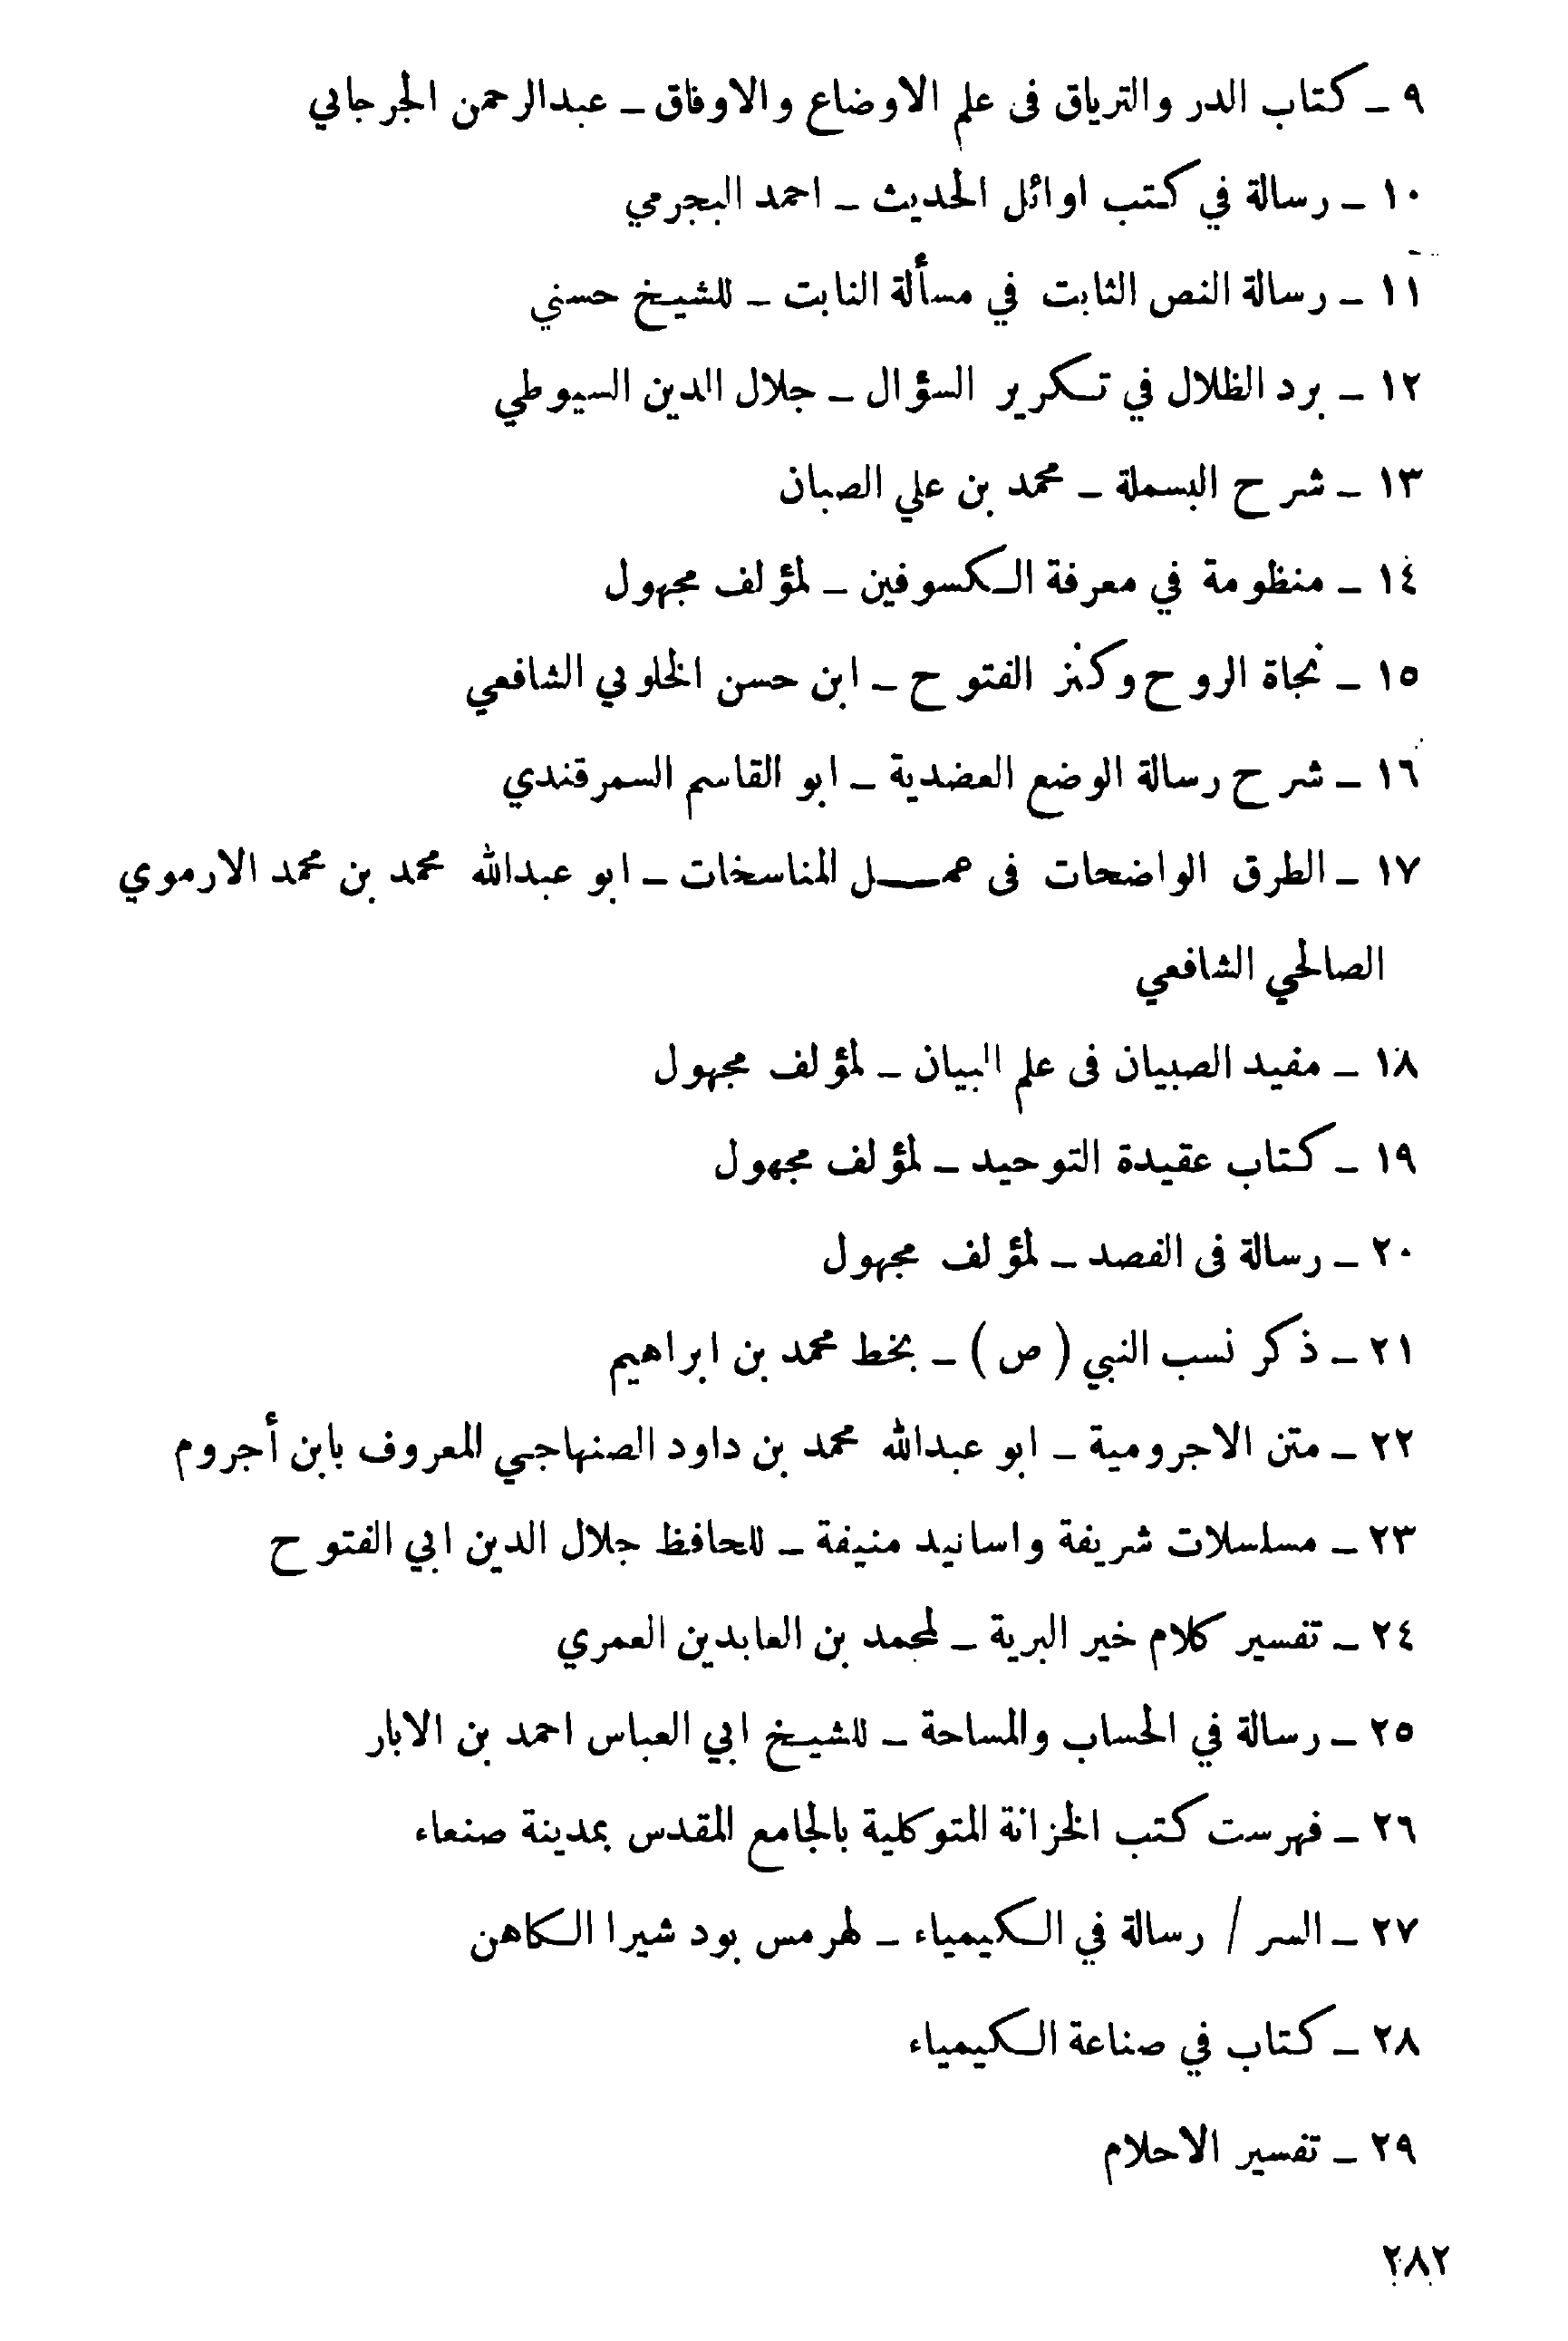 ٩ ـ كتاب الدر والترياق فى علم الاوضاع والاوفاق ـ عبدالرحمن الجرجاني
١٠ ـ رسالة في كتب اوائل الحديث ـ احمد البجرمي
١١ ـ رسالة النص الثابت في مسألة النابت ـ للشيخ حسني
١٢ ـ برد الظلال في تكرير السؤال ـ جلال الدين السيوطي
١٣ ـ شرح البسملة ـ محمد بن علي الصبان
١٤ ـ منظومة في معرفة الكسوفين ـ لمؤلف مجهول
١٥ ـ نجاة الروح وكنز الفتوح ـ ابن حسن الخلوتي الشافعي
١٦ ـ شرح رسالة الوضع العضدية ـ ابو القاسم السمرقندي
١٧ ـ الطرق الواضحات فى عمـــل المناسخات ـ ابو عبدالله محمد بن محمد الارموي
الصالحي الشافعي
١٨ ـ مفيد الصبيان فى علم البيان ـ لمؤلف مجهول
١٩ ـ كتاب عقيدة التوحيد ـ لمؤلف مجهول
٢٠ ـ رسالة فى الفصد ـ لمؤلف مجهول
٢١ ـ ذكر نسب النبي ( ص ) ـ بخط محمد بن ابراهيم
٢٢ ـ متن الاجرومية ـ ابو عبدالله محمد بن داود الصنهاجي المعروف بابن أجروم
٢٣ ـ مسلسلات شريفة واسانيد منيفة ـ للحافظ جلال الدين ابي الفتوح
٢٤ ـ تفسير كلام خير البرية ـ لمحمد بن العابدين العمري
٢٥ ـ رسالة في الحساب والمساحة ـ للشيخ ابي العباس احمد بن الابار
٢٦ ـ فهرست كتب الخزانة المتوكلية بالجامع المقدس بمدينة صنعاء
٢٧ ـ السر / رسالة في الكيمياء ـ لهرمس بود شيرا الكاهن
٢٨ ـ كتاب في صناعة الكيمياء
٢٩ ـ تفسير الاحلام
٢٨٢